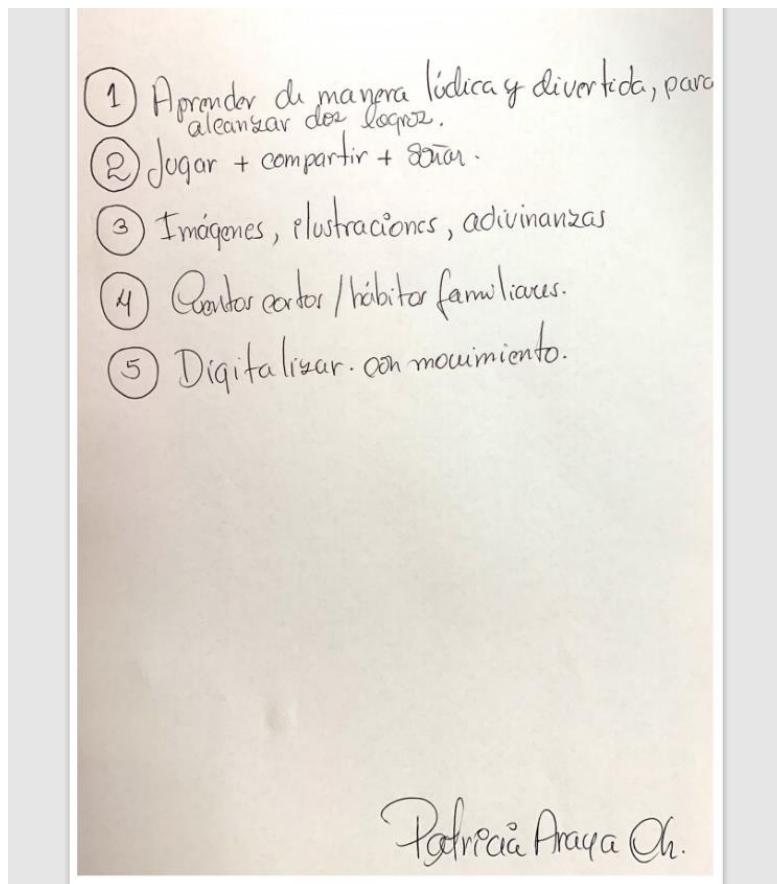 1 Aprender de manera lúdica y divertida, para
alcanzar dos logros.
2 Jugar + compartir + soñar.
3 Imágenes, ilustraciones, adivinanzas
4 Cuentos cortos / hábitos familiares.
5 Digitalizar. con movimiento.
Patricia Araya Ch.